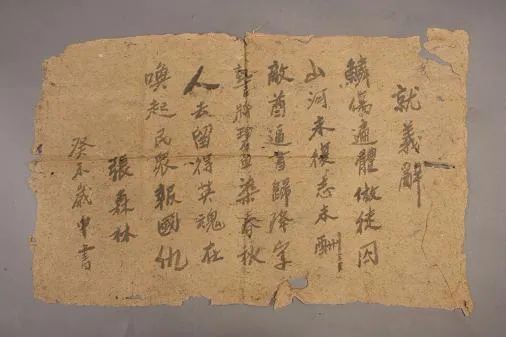 就義辭
鱗傷遍體做徒囚
山河未復志未酬
敵酋逼書歸降字
將血染春秋
人去留得英魂在
喚起民眾報國仇
張森林
癸未歲中書